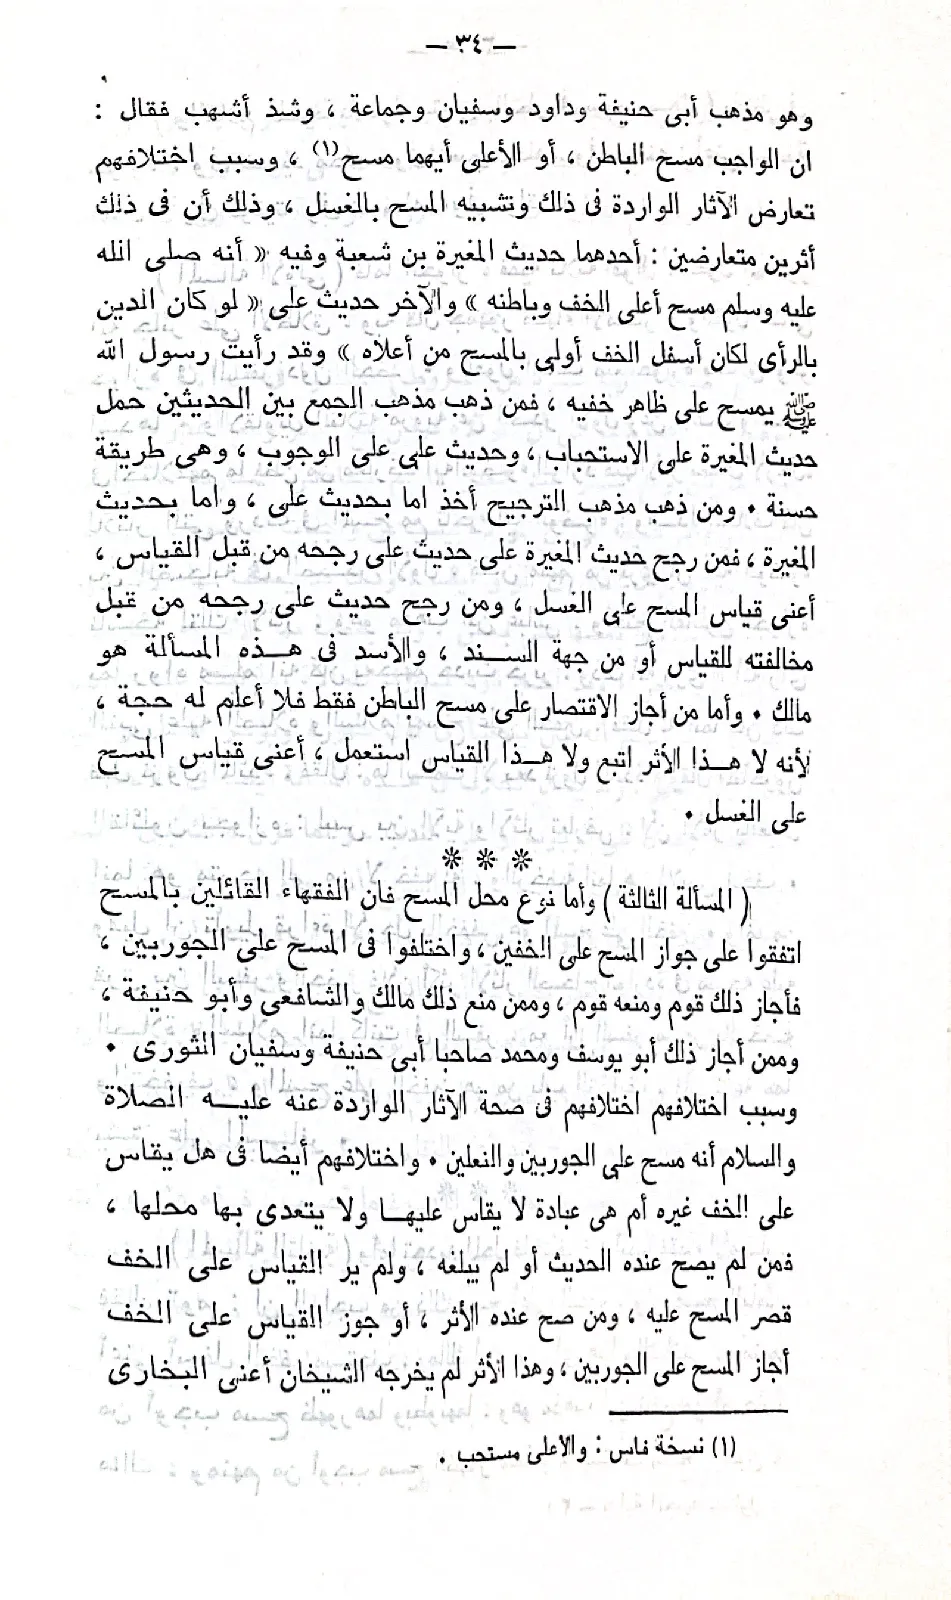 — ٣٤ —
وهو مذهب أبى حنيفة وداود وسفيان وجماعة ، وشذ أشهب فقال :
ان الواجب مسح الباطن ، أو الأعلى أيهما مسح(١) ، وسبب اختلافهم
تعارض الآثار الواردة فى ذلك وتشبيه المسح بالغسل ، وذلك أن فى ذلك
أثرين متعارضين : أحدهما حديث المغيرة بن شعبة وفيه « أنه صلى الله
عليه وسلم مسح أعلى الخف وباطنه » والآخر حديث على « لو كان الدين
بالرأى لكان أسفل الخف أولى بالمسح من أعلاه » وقد رأيت رسول الله
ﷺ يمسح على ظاهر خفيه ، فمن ذهب مذهب الجمع بين الحديثين حمل
حديث المغيرة على الاستحباب ، وحديث على على الوجوب ، وهى طريقة
حسنة • ومن ذهب مذهب الترجيح أخذ اما بحديث على ، واما بحديث
المغيرة ، فمن رجح حديث المغيرة على حديث على رجحه من قبل القياس ،
أعنى قياس المسح على الغسل ، ومن رجح حديث على رجحه من قبل
مخالفته للقياس أو من جهة السـند ، والأسد فى هـذه المسألة هو
مالك • وأما من أجاز الاقتصار على مسح الباطن فقط فلا أعلم له حجة ،
لأنه لا هـذا الأثر اتبع ولا هـذا القياس استعمل ، أعنى قياس المسح
على الغسل •
❊ ❊ ❊
( المسألة الثالثة ) وأما نوع محل المسح فان الفقهاء القائلين بالمسح
اتفقوا على جواز المسح على الخفين ، واختلفوا فى المسح على الجوربين ،
فأجاز ذلك قوم ومنعه قوم ، وممن منع ذلك مالك والشافعى وأبو حنيفة ،
وممن أجاز ذلك أبو يوسف ومحمد صاحبا أبى حنيفة وسفيان الثورى •
وسبب اختلافهم اختلافهم فى صحة الآثار الواردة عنه عليـه الصلاة
والسلام أنه مسح على الجوربين والنعلين • واختلافهم أيضا فى هل يقاس
على الخف غيره أم هى عبادة لا يقاس عليهـا ولا يتعدى بها محلها ،
فمن لم يصح عنده الحديث أو لم يبلغه ، ولم ير القياس على الخف
قصر المسح عليه ، ومن صح عنده الأثر ، أو جوز القياس على الخف
أجاز المسح على الجوربين ، وهذا الأثر لم يخرجه الشيخان أعنى البخارى
(١) نسخة فاس : والأعلى مستحب .